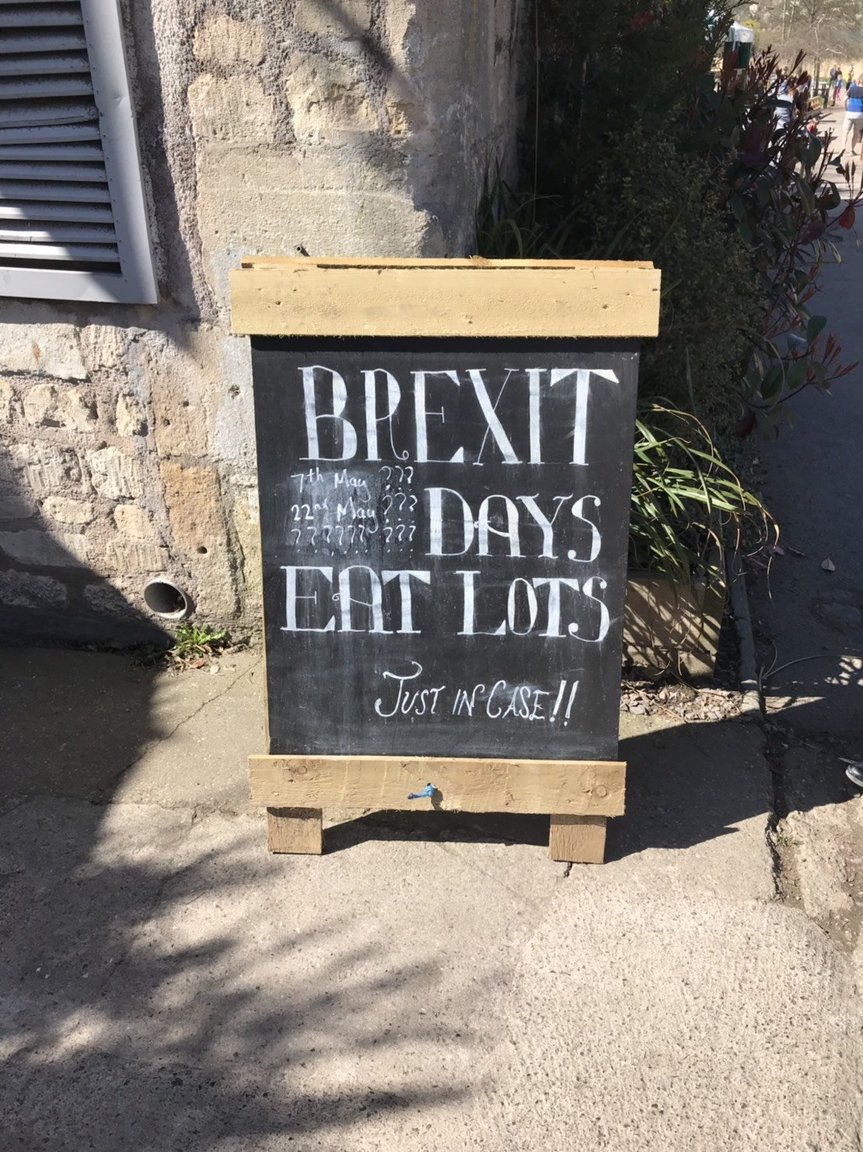 BREXIT
7th May ???
22nd May ???
?????? ???
DAYS
EAT LOTS
JUST IN CASE!!